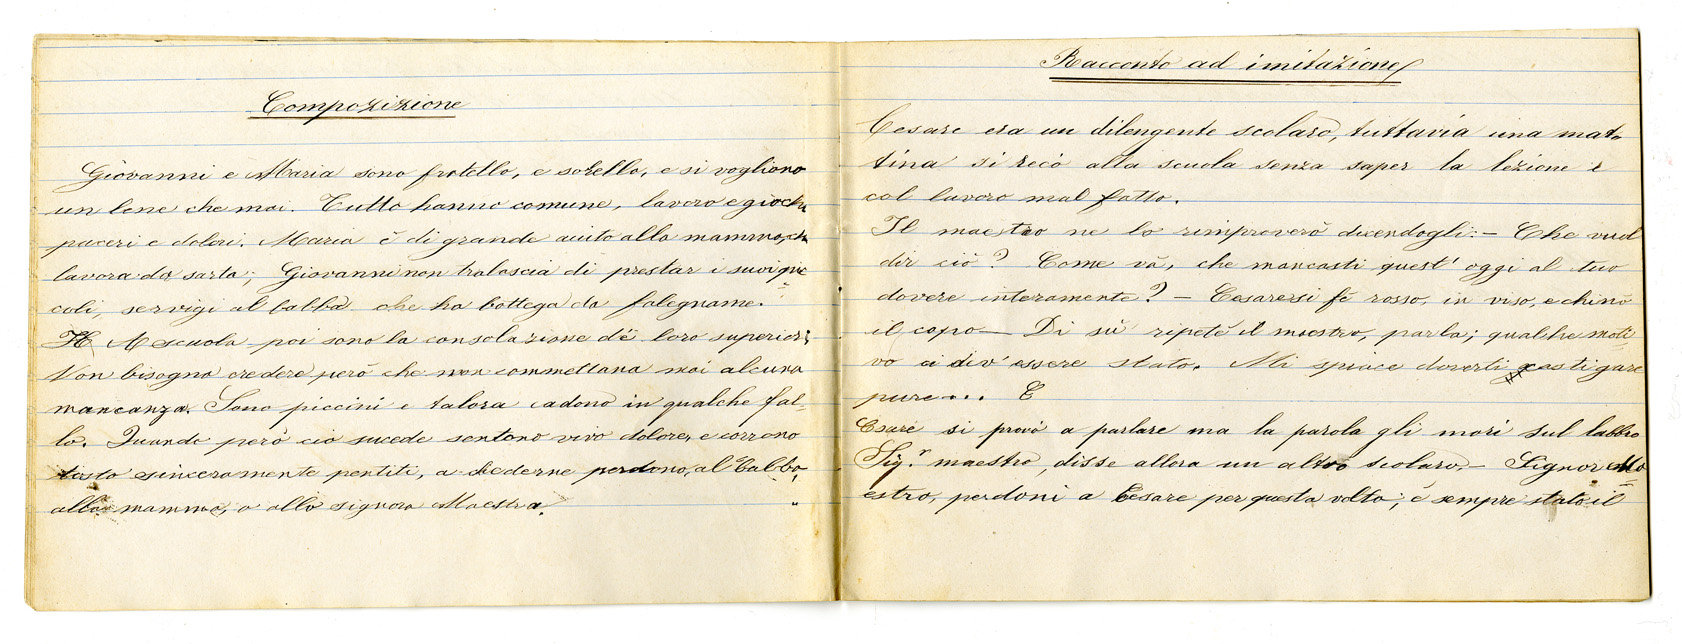 Composizione
Giovanni e Maria sono fratello, e sorella, e si vogliono
un bene che mai. Tutto hanno comune, lavoro e giochi
piaceri e dolori. Maria è di grande aiuto alla mamma, che
lavora da sarta; Giovanni non tralascia di prestar i suoi pic
coli, servigi al babbo che ha bottega da falegname.
A scuola poi sono la consolazione dei loro superiori;
Non bisogna credere però che non commettano mai alcuna
mancanza. Sono piccini e talora cadono in qualche fal-
lo. Quando però ciò sucede sentono vivo dolore, e corrono
tosto sinceramente pentiti, a chiederne perdono, al babbo,
alla mamma, o alla signora Maestra.
Racconto ad imitazione
Cesare era un dilengente scolaro, tuttavia una mat-
tina si recò alla scuola senza saper la lezione e
col lavoro mal fatto.
Il maestro ne lo rimproverò dicendogli: – Che vuol
dir ciò? Come và, che mancasti quest' oggi al tuo
dovere interamente? – Cesare si fè rosso, in viso, e chinò
il capo – Di sù ripetè il maestro, parla; qualche moti
vo ci div' essere stato. Mi spiace doverti castigare
pure... E
Cesare si provò a parlare ma la parola gli morì sul labbro
Sig.r maestro, disse allora un altro scolaro. – Signor Ma
estro, perdoni a Cesare per questa volta; è sempre stato il